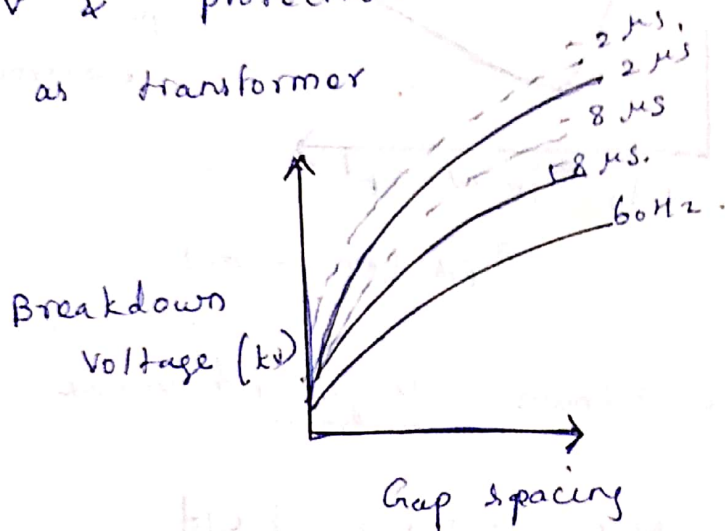 &
as transformer
- 2 μs.
2 μs
- 8 μs
8 μs.
60Hz.
Breakdown
Voltage (kv)
Gap spacing